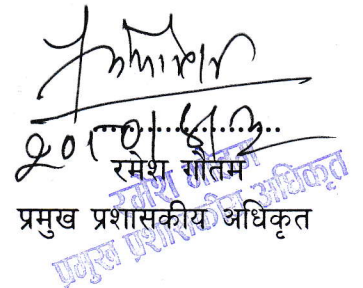 रमेश गौतम
प्रमुख प्रशासकीय अधिकृत
रमेश गौतम
प्रमुख प्रशासकीय अधिकृत